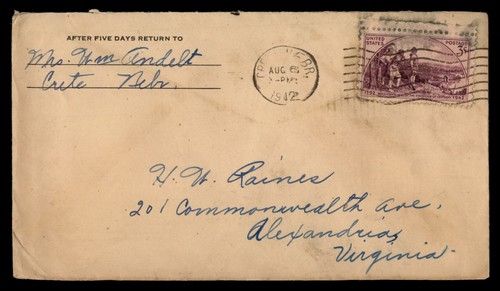 AFTER FIVE DAYS RETURN TO
Mrs. Wm Andelt
Crete Nebr
CRETE NEBR.
AUG 6
PM
1942
UNITED STATES POSTAGE
3¢
1792 1942
H. W. Raines
201 Commonwealth Ave,
Alexandria,
Virginia.